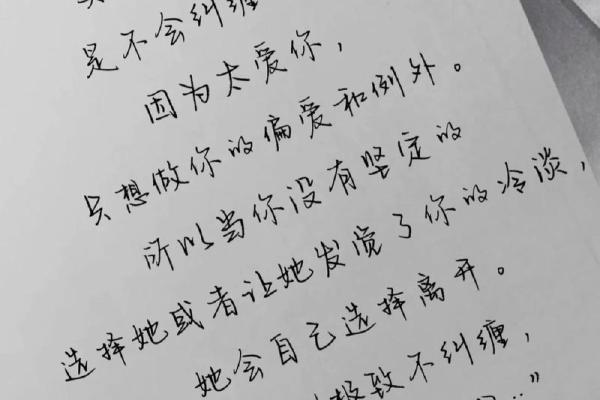 是不会纠缠
因为太爱你，
只想做你的偏爱和例外。
所以当你没有坚定的
选择她或者让她发觉了你的冷淡，
她会自己选择离开。
极致不纠缠，